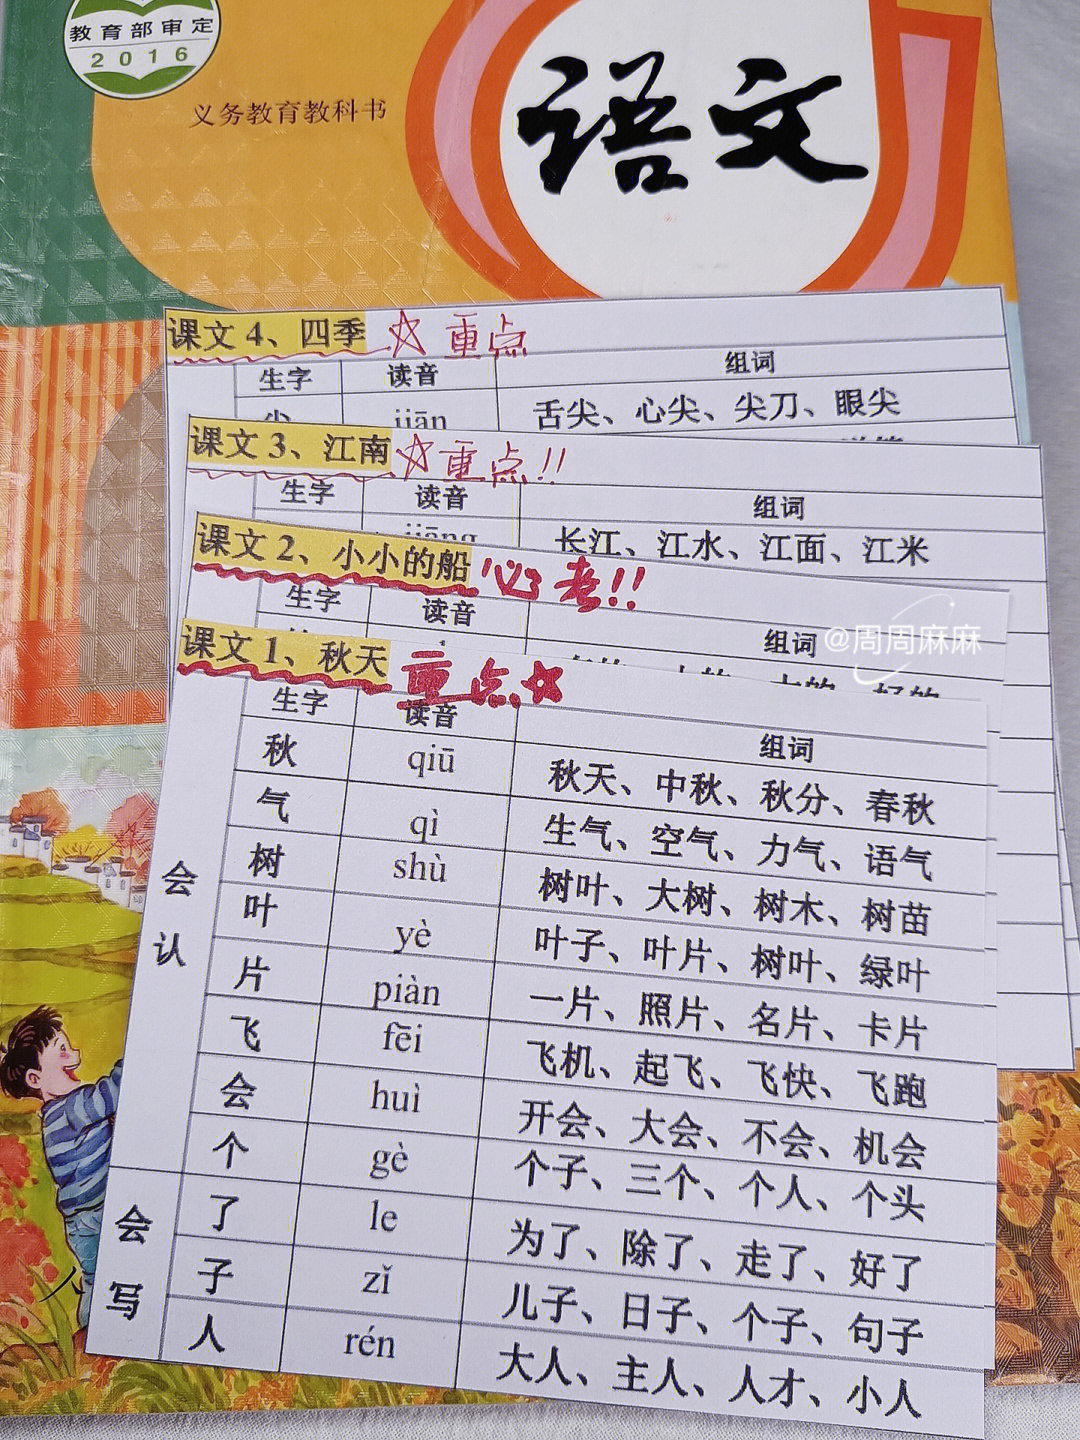 教育部审定
2016
义务教育教科书
语文
课文 4、四季 ☆ 重点
生字 读音 组词
尖 jiān 舌尖、心尖、尖刀、眼尖
课文 3、江南 ☆ 重点!!
生字 读音 组词
jiāng 长江、江水、江面、江米
课文 2、小小的船 必考!!
生字 读音 组词
@周周麻麻
课文 1、秋天 重点☆
生字 读音 组词
会认
秋 qiū 秋天、中秋、秋分、春秋
气 qì 生气、空气、力气、语气
树 shù 树叶、大树、树木、树苗
叶 yè 叶子、叶片、树叶、绿叶
片 piàn 一片、照片、名片、卡片
飞 fēi 飞机、起飞、飞快、飞跑
会 huì 开会、大会、不会、机会
个 gè 个子、三个、个人、个头
会写
了 le 为了、除了、走了、好了
子 zǐ 儿子、日子、个子、句子
人 rén 大人、主人、人才、小人